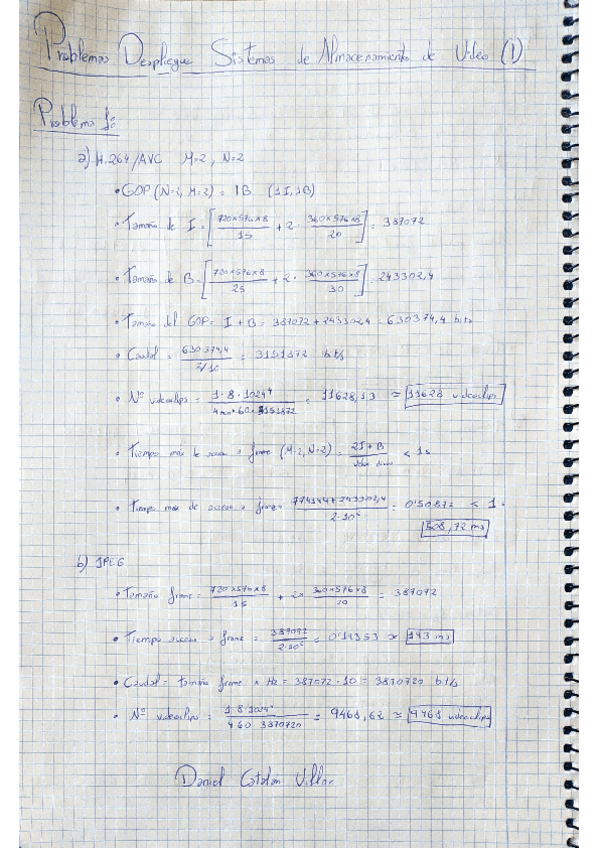 Problemas Despliegue Sistemas de Almacenamiento de Video (1)
Problema 1:
a) H.264/AVC M=2, N=2
• GOP (N=2, M=2) = IB (1I, 1B)
• Tamaño de I = [720×576×8/15 + 2· 360×576×8/20] = 387072
• Tamaño de B = [720×576×8/25 + 2· 360×576×8/30] = 243302,4
• Tamaño del GOP = I + B = 387072 + 243302,4 = 630374,4 bits
• Caudal = 630374,4 / 2/10 = 3151872 bit/s
• Nº videoclips = 1·8·1024⁴ / 4·60·3151872 = 11628,13 ≈ 11628 videoclips
• Tiempo max de acceso a frame (M=2, N=2) = 2I+B / < 1s
• Tiempo max de acceso a frame = 774144+243302,4 / 2·10⁶ = 0'50872 < 1
508,72 ms
b) JPEG
• Tamaño frame = 720×576×8/15 + 2× 360×576×8/20 = 387072
• Tiempo acceso a frame = 387072 / 2·10⁶ = 0'19353 ≈ 193 ms
• Caudal = tamaño frame × Hz = 387072 · 10 = 3870720 bit/s
• Nº videoclips = 1·8·1024⁴ / 4·60·3870720 = 9468,62 ≈ 9468 videoclips
Daniel Catalán Villar